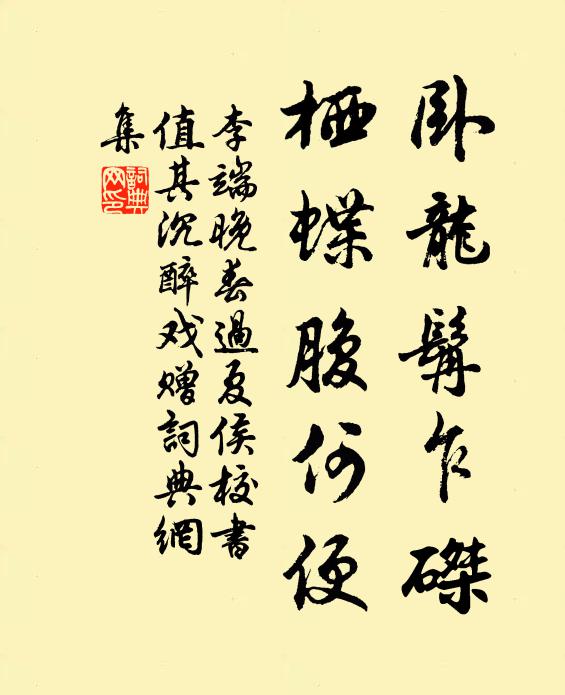 卧龍髯乍磔
栖蝶腹何便
李端晚春過夏侯校書
值其沉醉戏贈詞典網
集
詞典网印